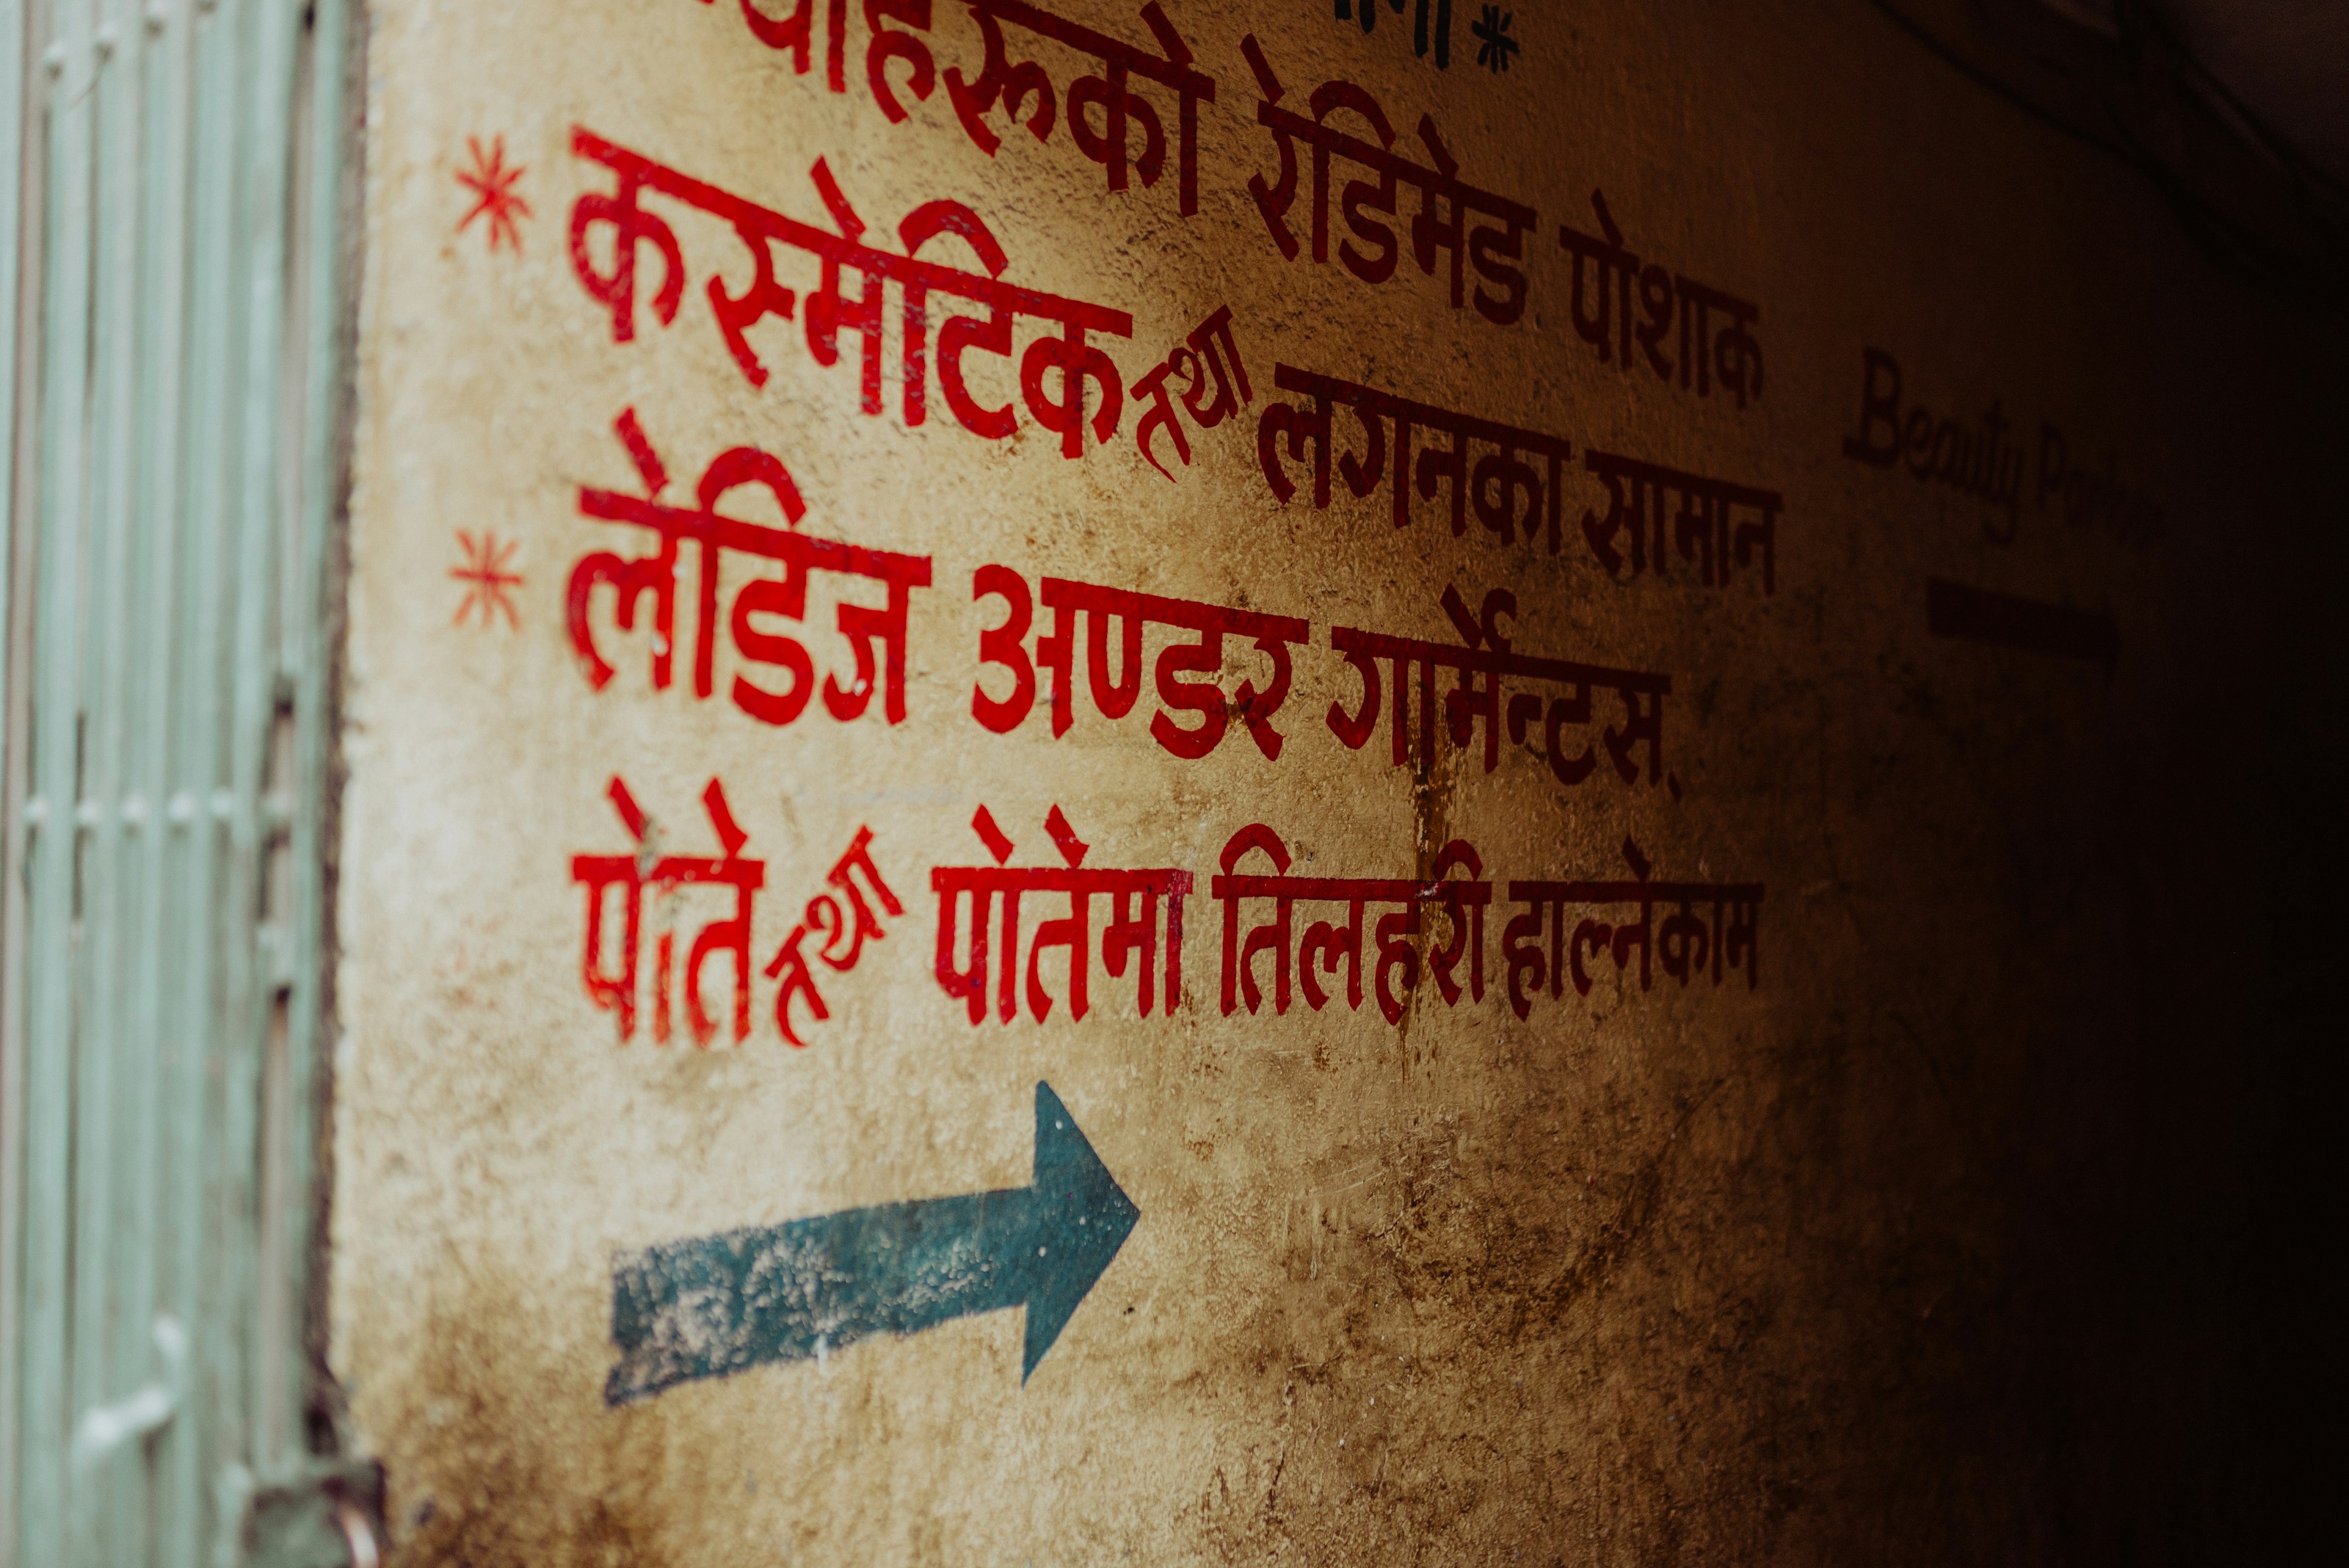 रेडिमेड पोशाक
* कस्मेटिक तथा लगनका सामान
* लेडिज अण्डर गार्मेन्टस्
पोते तथा पोतेमा तिलहरी हाल्नेकाम
Beauty Parlour